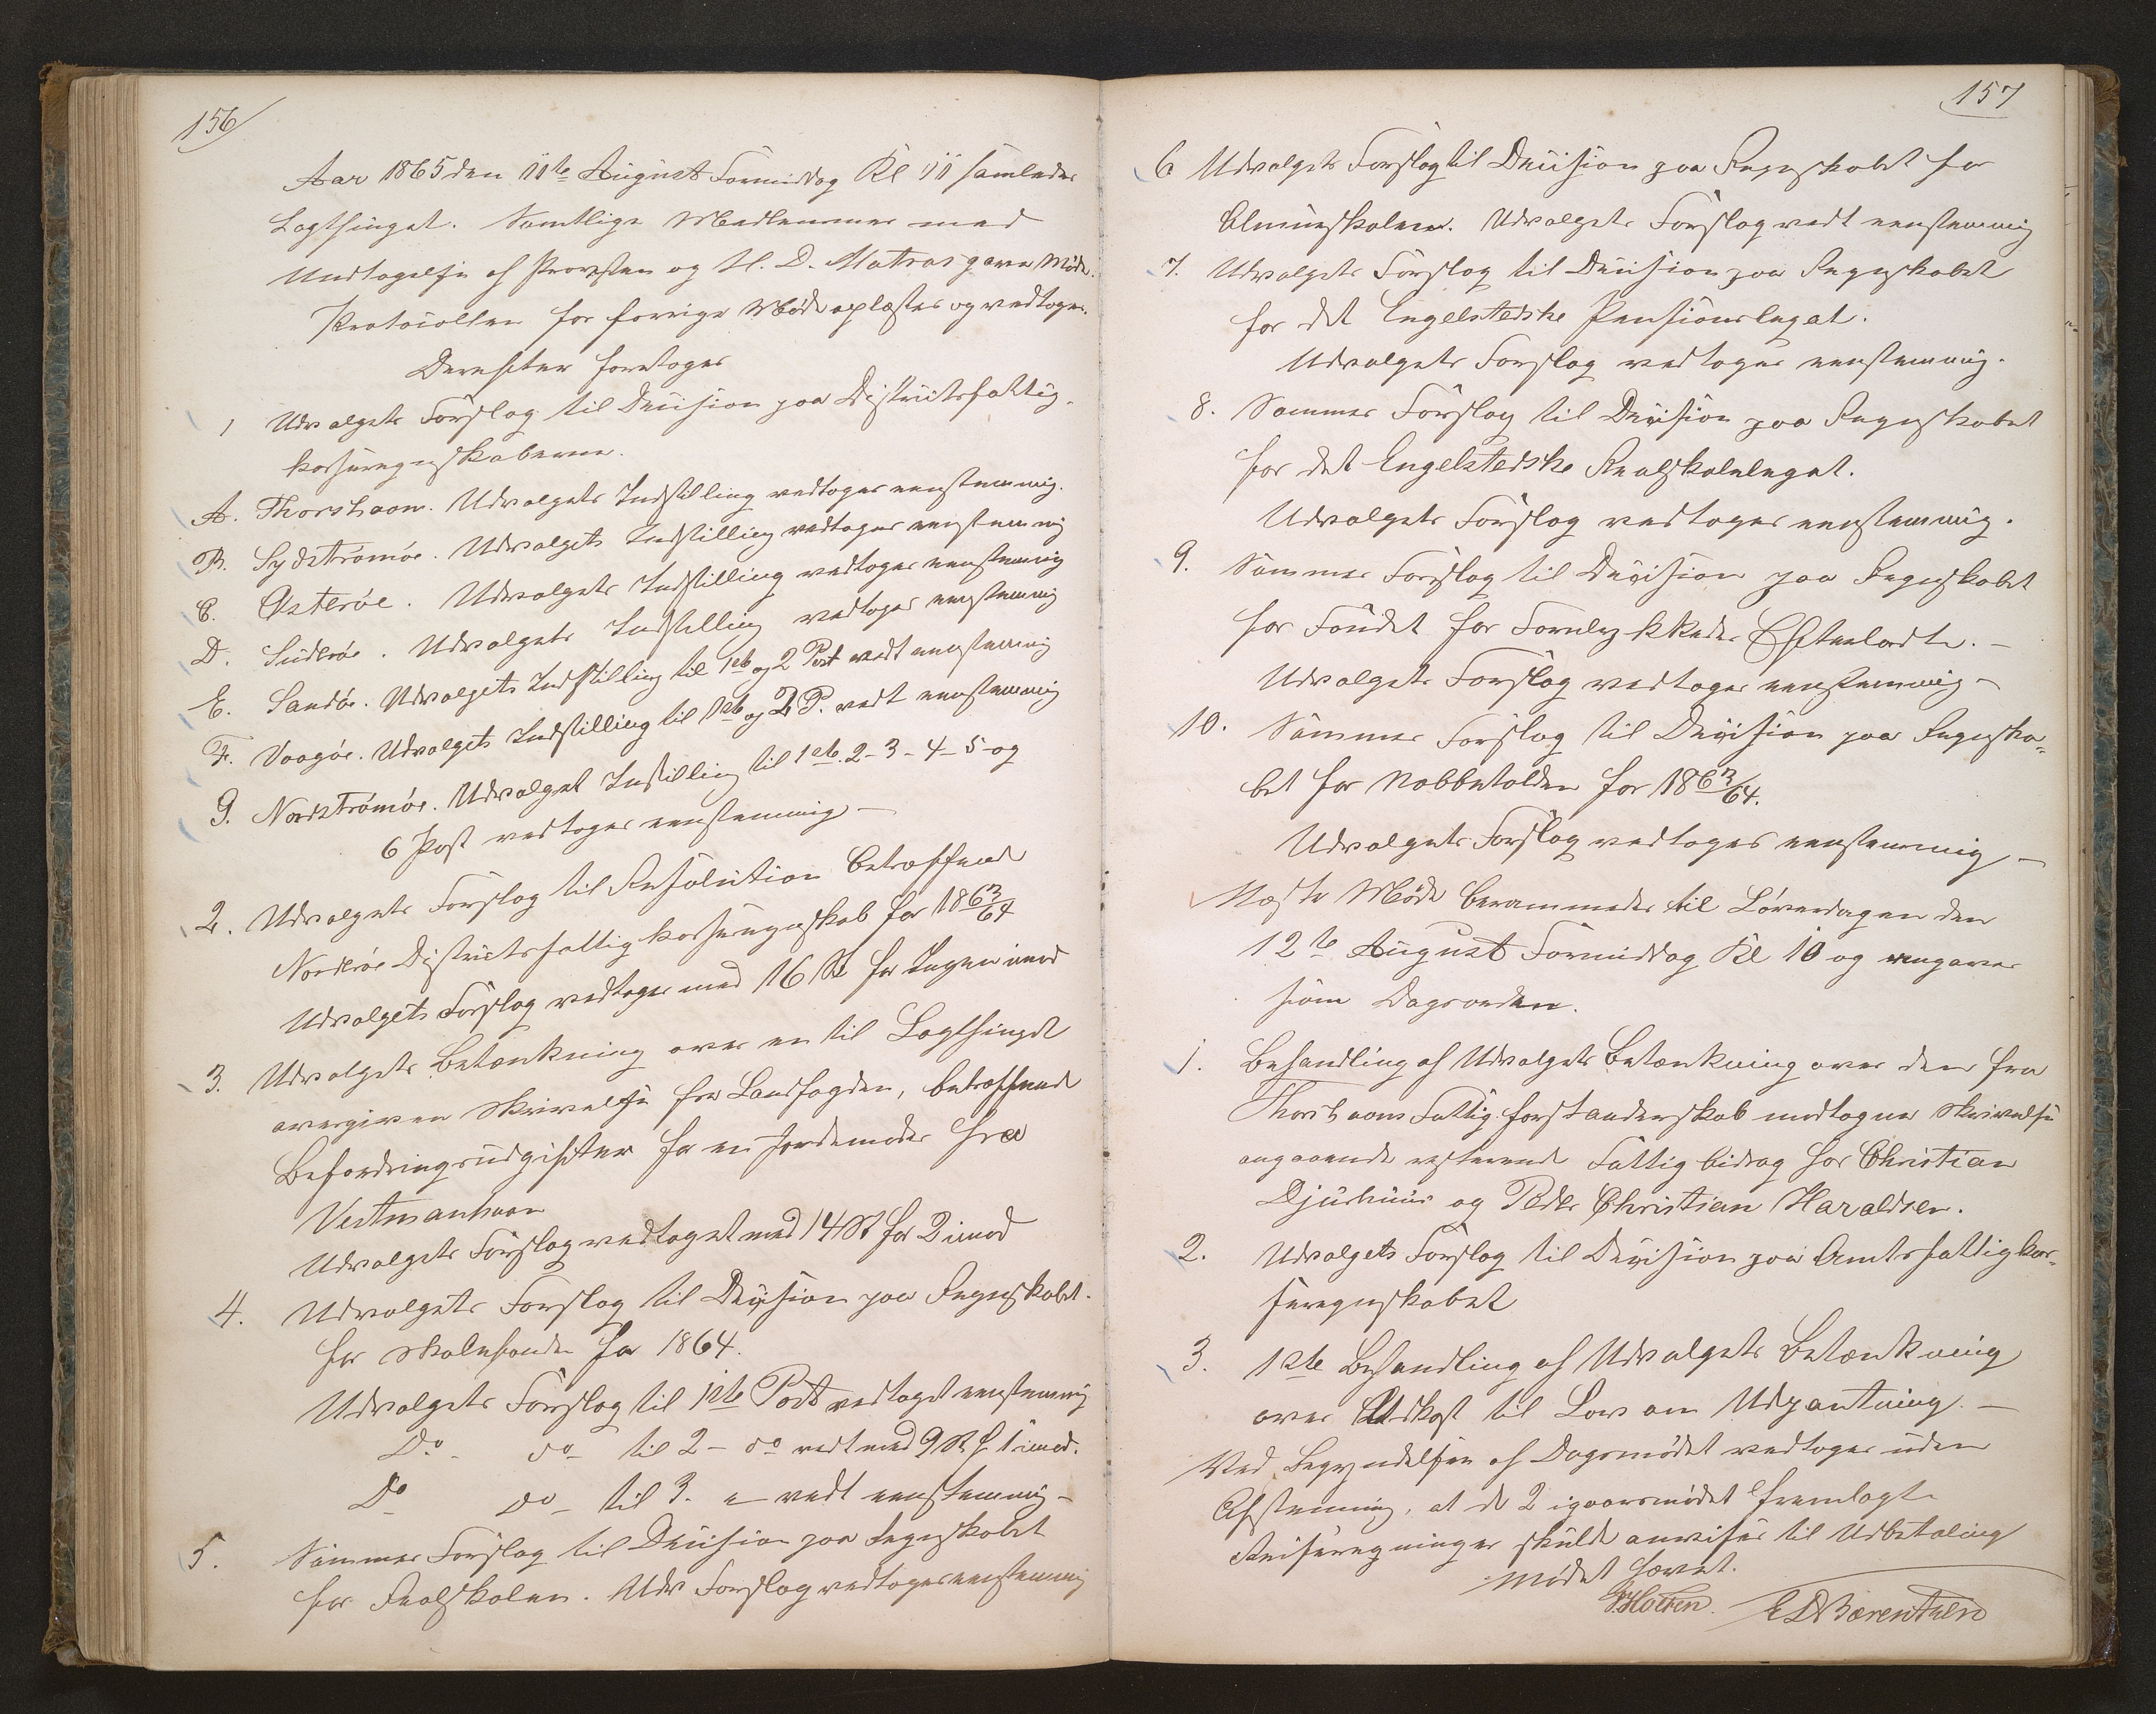 156
Aar 1865 den 11te August Formiddag Kl 11 samledes
Lagthinget. Samtlige Medlemmer med
Undtagelse af Provsten og H. D. Matras gave Møde.
Protocollen for forrige Møde oplæstes og vedtoges.
Derefter foretoges
1 Udvalgets Forslag til Decision paa Districtsfattig-
kasseregnskaberne.
A. Thorshavn. Udvalgets Indstilling vedtoges eenstemmig.
B. Sydstrømøe. Udvalgets Indstilling vedtoges eenstemmig
C. Østerøe. Udvalgets Indstilling vedtoges eenstemmig
D. Suderøe. Udvalgets Indstilling vedtoges eenstemmig
E. Sandøe. Udvalgets Indstilling til 1ste og 2 Post vedt eenstemmig
F. Vaagøe. Udvalgets Indstilling til 1ste og 2 P. vedt eenstemmig
G. Nordstrømøe. Udvalget Instilling til 1ste 2-3-4-5 og
6 Post vedtoges eenstemmig –
2. Udvalgets Forslag til Resolution betræffende
Norderøe Districtsfattigkasseregnskab for 1863/64
Udvalgets Forslag vedtoges med 16 St for Ingen imod
3. Udvalgets Betænkning over en til Lagthinget
overgiven Skrivelse fra Landfogden, betræffende
Befordringsudgifter for en Jordemoder fra
Vestmanhavn
Udvalgets Forslag vedtoget med 14 St for 2 imod
4. Udvalgets Forslag til Decision paa Regnskabet
for Skolefonden for 1864.
Udvalgets Forslag til 1ste Post vedtoget eenstemmig
Do do til 2 – do vedt med 9 St f. 1 imod.
Do do til 3. – vedt eenstemmig –
5. Sammes Forslag til Decision paa Regnskabet
for Realskolen. Udv Forslag vedtoges eenstemmig
157
6 Udvalgets Forslag til Decision paa Regnskabet for
Almueskolen. Udvalgets Forslag vedt eenstemmig
7. Udvalgets Forslag til Decision paa Regnskabet
for det Engelstedske Pensionslegat.
Udvalgets Forslag vedtoges eenstemmig.
8. Sammes Forslag til Decision paa Regnskabet
for det Engelstedske Realskolelegat.
Udvalgets Forslag vedtoges eenstemmig.
9. Sammes Forslag til Decision paa Regnskabet
for Fondet for Forulykkedes Efterladte. –
Udvalgets Forslag vedtoges eenstemmig –
10. Sammes Forslag til Decision paa Regnska-
bet for Næbbetolden for 1863/64.
Udvalgets Forslag vedtoges eenstemmig –
Næste Møde berammedes til Løverdagen den
12te August Formiddag Kl 10 og angaves
som Dagsorden.
1. Behandling af Udvalgets Betænkning over den fra
Thorshavns Fattigforstanderskab modtagne Skrivelse
angaaende resterende Fattigbidrag for Christian
Djurhuus og Peder Christian Haraldsen.
2. Udvalgets Forslag til Decision paa Amtsfattigkas-
seregnskabet
3. 1ste Behandling af Udvalgets Betænkning
over Udkast til Lov om Udpantning. –
Ved Begyndelsen af Dagsmødet vedtoges uden
Afstemning, at de 2 igaarsmødet fremlagte
Reiseregninger skulde anvises til Udbetaling
Mødet hævet.
HCMüller